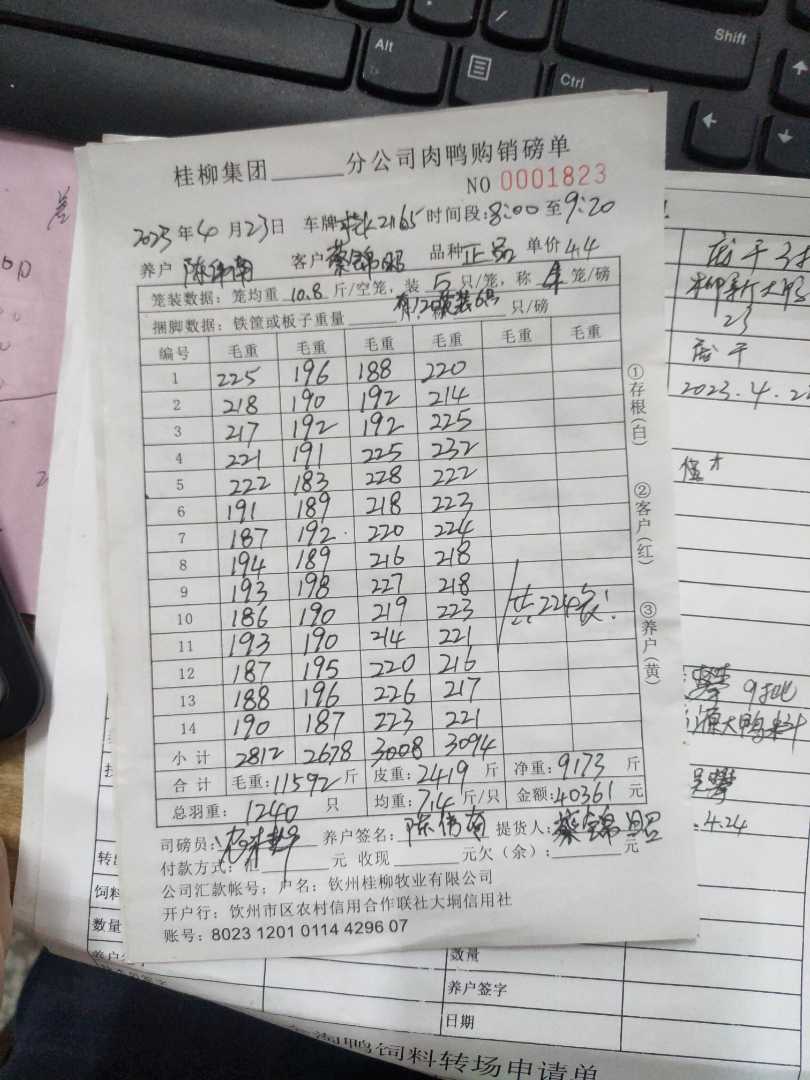 Alt
Shift
Ctrl
桂柳集团______分公司肉鸭购销磅单
NO 0001823
2023年4月23日 车牌 2165 时间段:8:00至9:20
养户 陈伟南 客户 蔡锦昭 品种 正品 单价 4.4
笼装数据: 笼均重 10.8 斤/空笼, 装 5 只/笼, 称 4 笼/磅
捆脚数据: 铁筐或板子重量 ____ 只/磅
编号 毛重 毛重 毛重 毛重 毛重 毛重
1 225 196 188 220
2 218 190 192 214
3 217 192 192 225
4 221 191 225 232
5 222 183 228 222
6 191 189 218 223
7 187 192 220 224
8 194 189 216 218
9 193 198 227 218
10 186 190 219 223
共224笼!
11 193 190 214 221
12 187 195 220 216
13 188 196 226 217
14 190 187 223 221
小计 2812 2678 3008 3094
合计 毛重:11592斤 皮重:2419斤 净重:9173斤
总羽重: 1240 只 均重:7.4斤/只 金额:40361元
司磅员: 养户签名: 陈伟南 提货人: 蔡锦昭
付款方式: 汇______元 收现______元欠(余):______元
公司汇款帐号; 户名: 钦州桂柳牧业有限公司
开户行: 饮州市区农村信用合作联社大垌信用社
账号: 8023 1201 0114 4296 07
①存根(白)
②客户(红)
③养户(黄)
23
2023.4.2
9批
大鸭料
4.24
转出
饲料
数量
数量
养户签字
日期
鸭饲料转场申请单